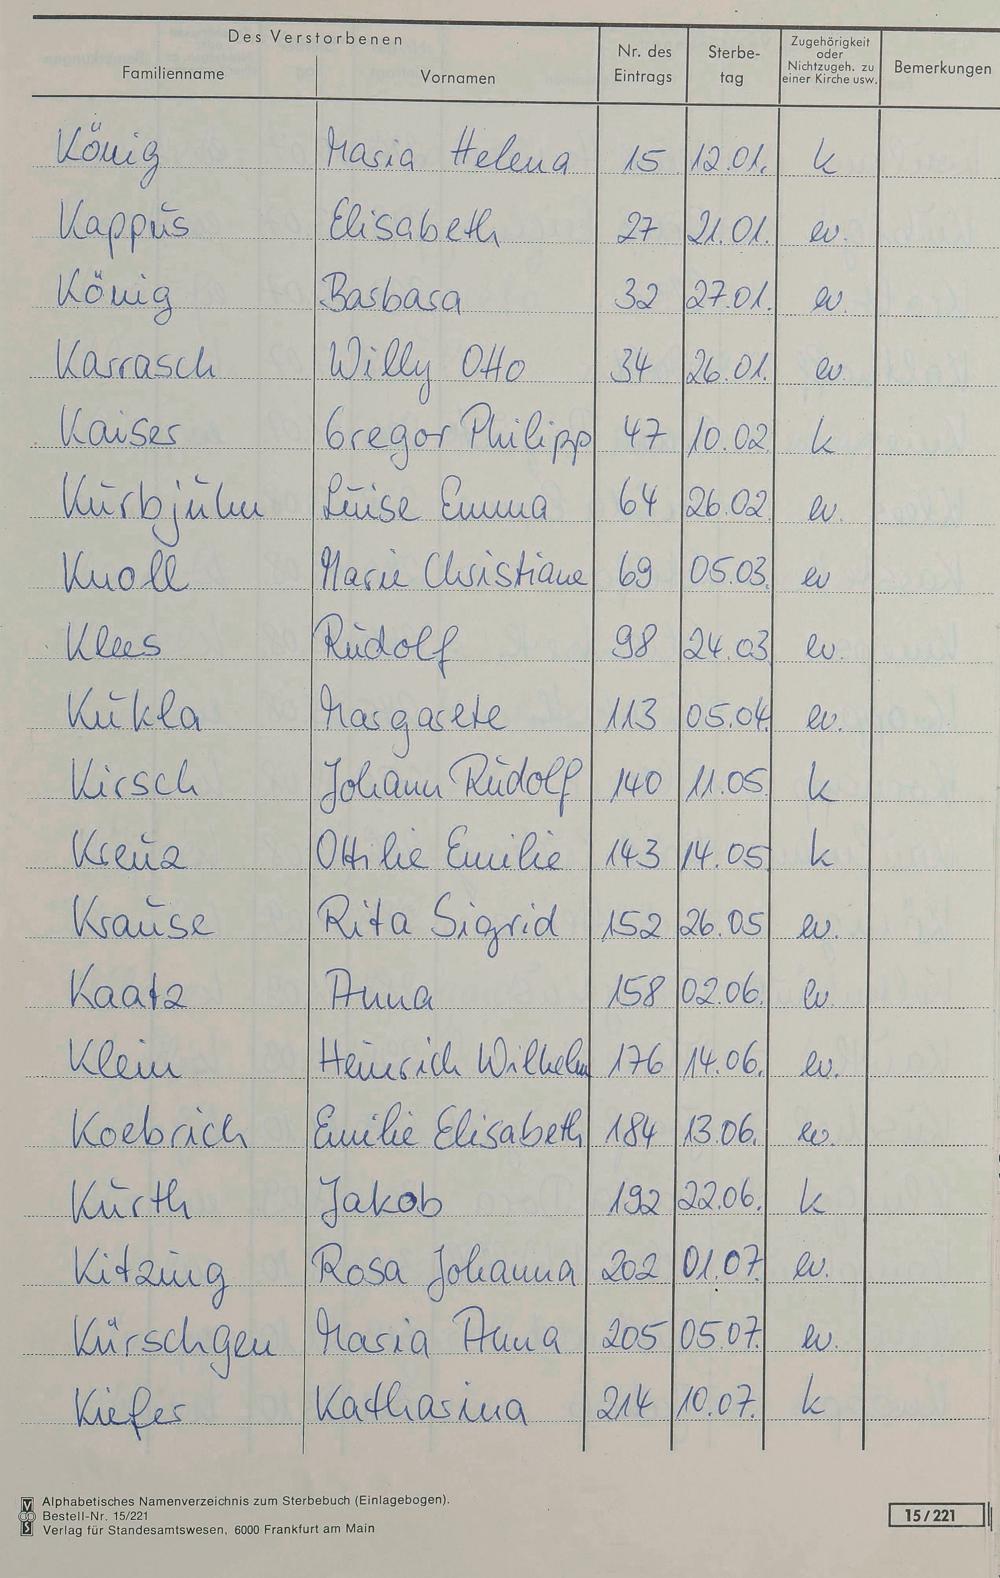 Des Verstorbenen
Familienname Vornamen Nr. des Eintrags Sterbe-tag Zugehörigkeit oder Nichtzugeh. zu einer Kirche usw. Bemerkungen
König Maria Helena 15 12.01. k
Kappus Elisabeth 27 21.01. ev.
König Barbara 32 27.01. ev.
Karrasch Willy Otto 34 26.01. ev.
Kaiser Gregor Philipp 47 10.02 k
Kurbjuhn Luise Emma 64 26.02 ev.
Knoll Marie Christiane 69 05.03. ev
Klees Rudolf 98 24.03 ev.
Kukla Margarete 113 05.04. ev.
Kirsch Johann Rudolf 140 11.05. k
Kreuz Ottilie Emilie 143 14.05 k
Krause Rita Sigrid 152 26.05 ev.
Kaatz Anna 158 02.06. ev
Klein Heinrich Wilhelm 176 14.06. ev.
Koebrich Emilie Elisabeth 184 13.06. ev.
Kurth Jakob 192 22.06. k
Kitzing Rosa Johanna 202 01.07. ev.
Kürschgen Maria Anna 205 05.07. ev.
Kiefer Katharina 214 10.07. k
Alphabetisches Namenverzeichnis zum Sterbebuch (Einlagebogen).
Bestell-Nr. 15/221
Verlag für Standesamtswesen, 6000 Frankfurt am Main
15/221